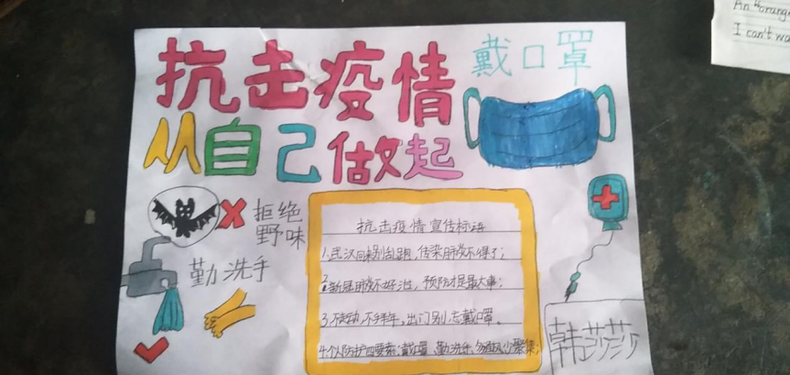 抗击疫情
戴口罩
从自己做起
拒绝
野味
勤洗手
抗击疫情宣传标语
1.武汉回来别乱跑，传染肺炎不得了；
2.新冠肺炎不好治，预防才是最大事；
3.不走动，不拜年，出门别忘戴口罩。
4.个人防护四要素：戴口罩 勤洗手 少聚集；
韩莎莎
An orange
I can't wa